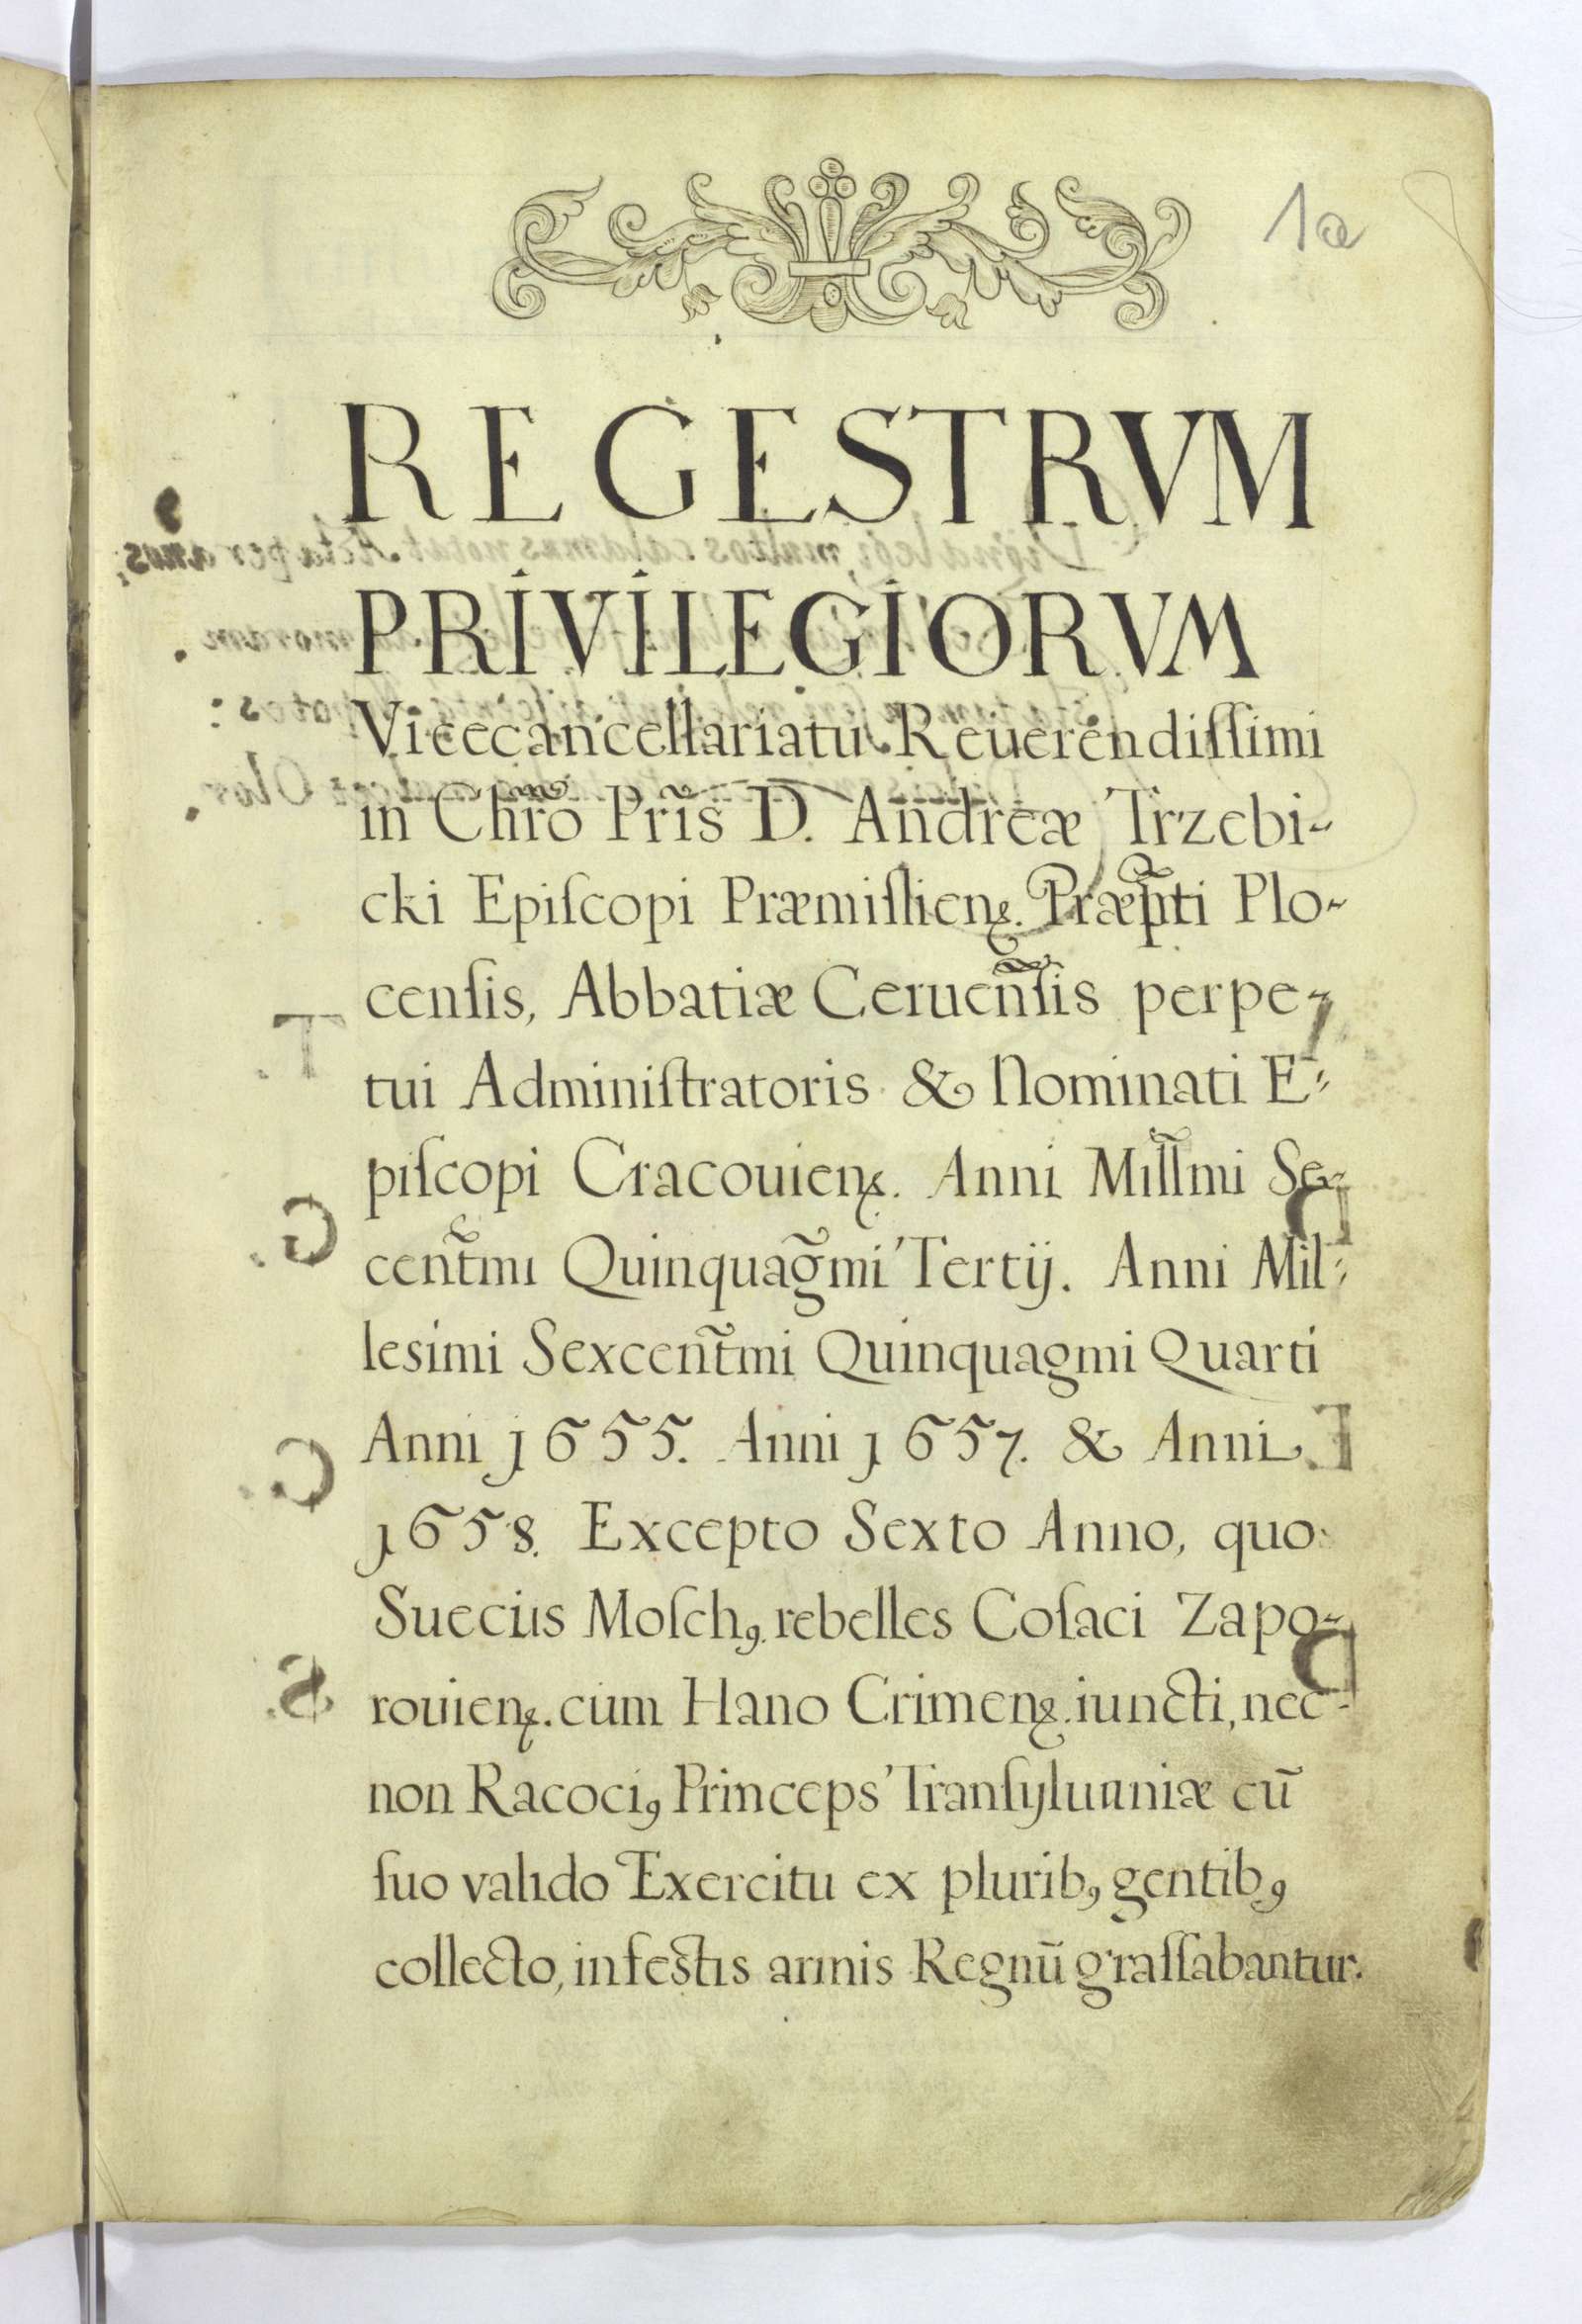 1a
REGESTRVM
PRIVILEGIORVM
Vicecancellariatu Reuerendiſſimi
in Chr̃o Pr̃is D. Andreæ Trzebi-
cki Epiſcopi Præmiſlienꝭ. Præp̃ti Plo-
cenſis, Abbatiæ Ceruen̄ſis perpe-
tui Adminiſtratoris & Nominati E-
piſcopi Cracouienꝭ. Anni Mill̃mi Se-
cent̃mi Quinquag̃mi Tertij. Anni Mil-
lesimi Sexcent̃mi Quinquagmi Quarti
Anni 1655. Anni 1657. & Anni
1658. Excepto Sexto Anno, quo
Suecus Moſchꝰ rebelles Coſaci Zapo-
rouienꝭ. cum Hano Crimenꝭ. iuncti, nec-
non Racociꝰ Princeps Tranſyluaniæ cū
ſuo valido Exercitu ex pluribꝰ gentibꝰ
collecto, infestis armis Regnū graſſabantur.